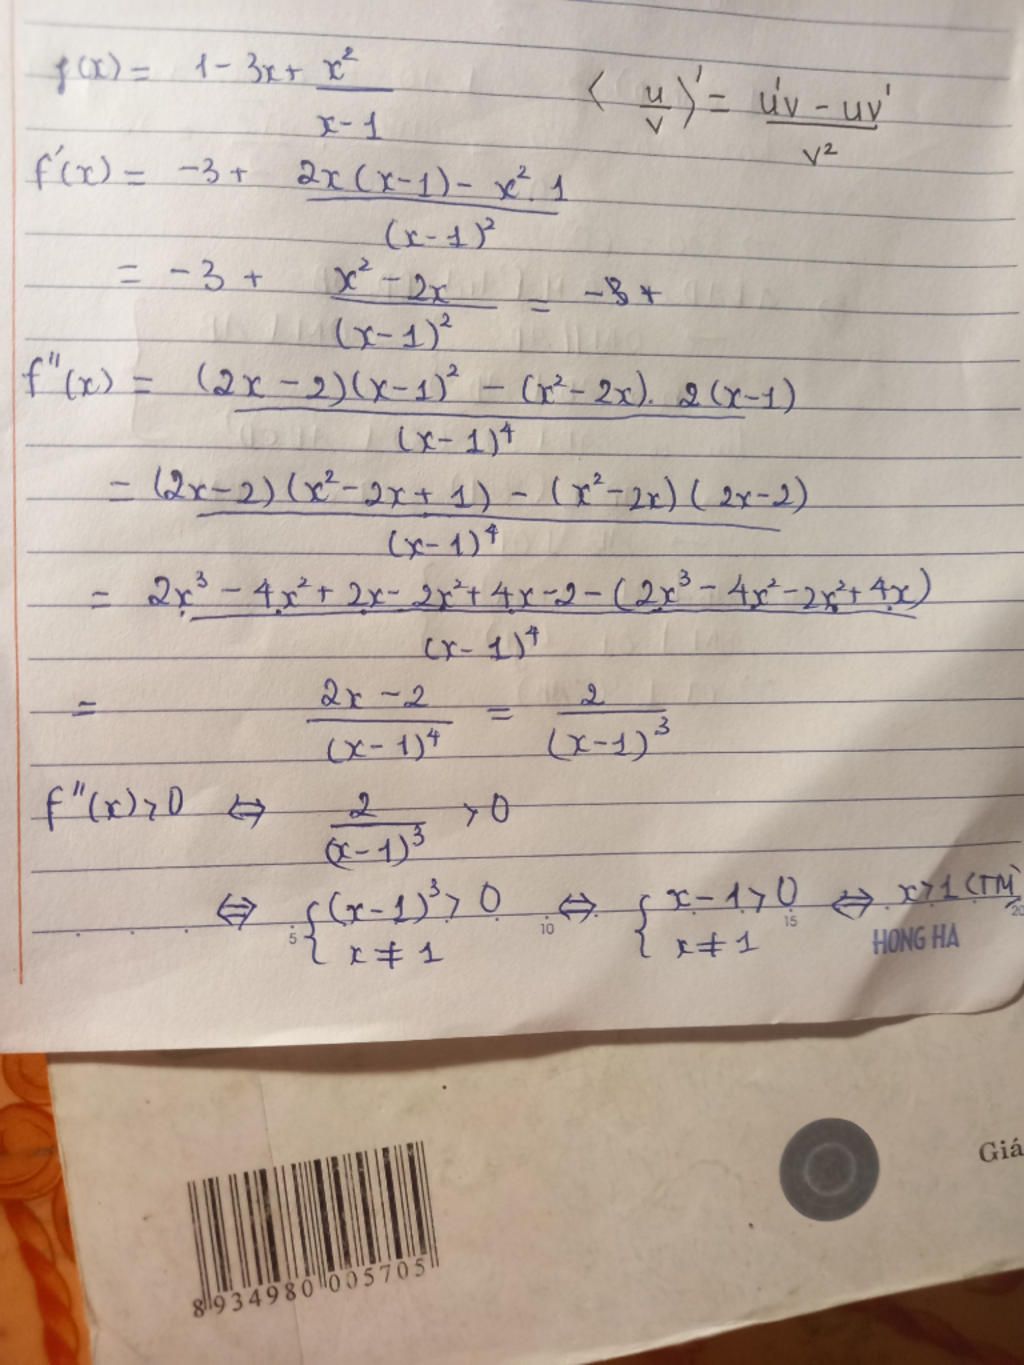 f(x) = 1 - 3x + x²/(x-1)
(u/v)' = (u'v - uv')/v²
f'(x) = -3 + (2x(x-1) - x².1)/(x-1)²
= -3 + (x² - 2x)/(x-1)² = -3 +
f"(x) = ((2x-2)(x-1)² - (x²-2x). 2(x-1))/(x-1)⁴
= ((2x-2)(x²-2x+1) - (x²-2x)(2x-2))/(x-1)⁴
= (2x³ - 4x² + 2x - 2x² + 4x - 2 - (2x³ - 4x² - 2x² + 4x))/(x-1)⁴
= (2x-2)/(x-1)⁴ = 2/(x-1)³
f"(x) > 0 ⇔ 2/(x-1)³ > 0
⇔ { (x-1)³ > 0 ⇔ { x-1 > 0 ⇔ x > 1 (TM)
x ≠ 1 x ≠ 1
5 10 15 20
HONG HA
Giá
8 934980 005705